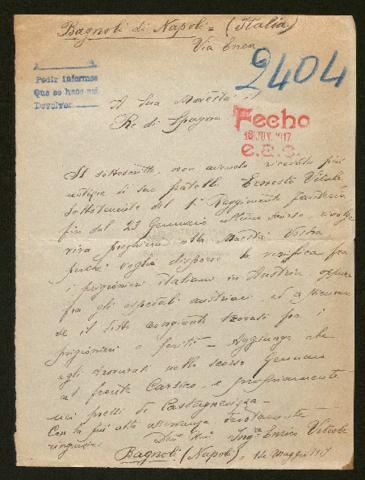 Bagnoli di Napoli = (Italia)
Via Enea
2404
Pedir informes
Que se hace así
Devolver
A Sua Maestà il
Re di Spagna
Fecho
1917
e.a.c.
Il sottoscritto non avendo ricevuto più
notizie di suo fratello Ernesto Vitale
Sottotenente del 1° Reggimento Fanteria
fin dal 23 Gennaio scorso rivolge
viva preghiera alla Maestà Vostra
perché voglia disporre la verifica fra
i prigionieri italiani in Austria oppure
fra gli ospedali austriaci, ed
se il detto trovasi fra i
prigionieri o feriti = Aggiungo che
egli trovavasi nello scorso Gennaio
al fronte Carsico, e precisamente
nei pressi di Castagnevizza =
Con la più alta
ringrazia
Ing. Enrico Vitale
Bagnoli (Napoli), 14 Maggio 1917